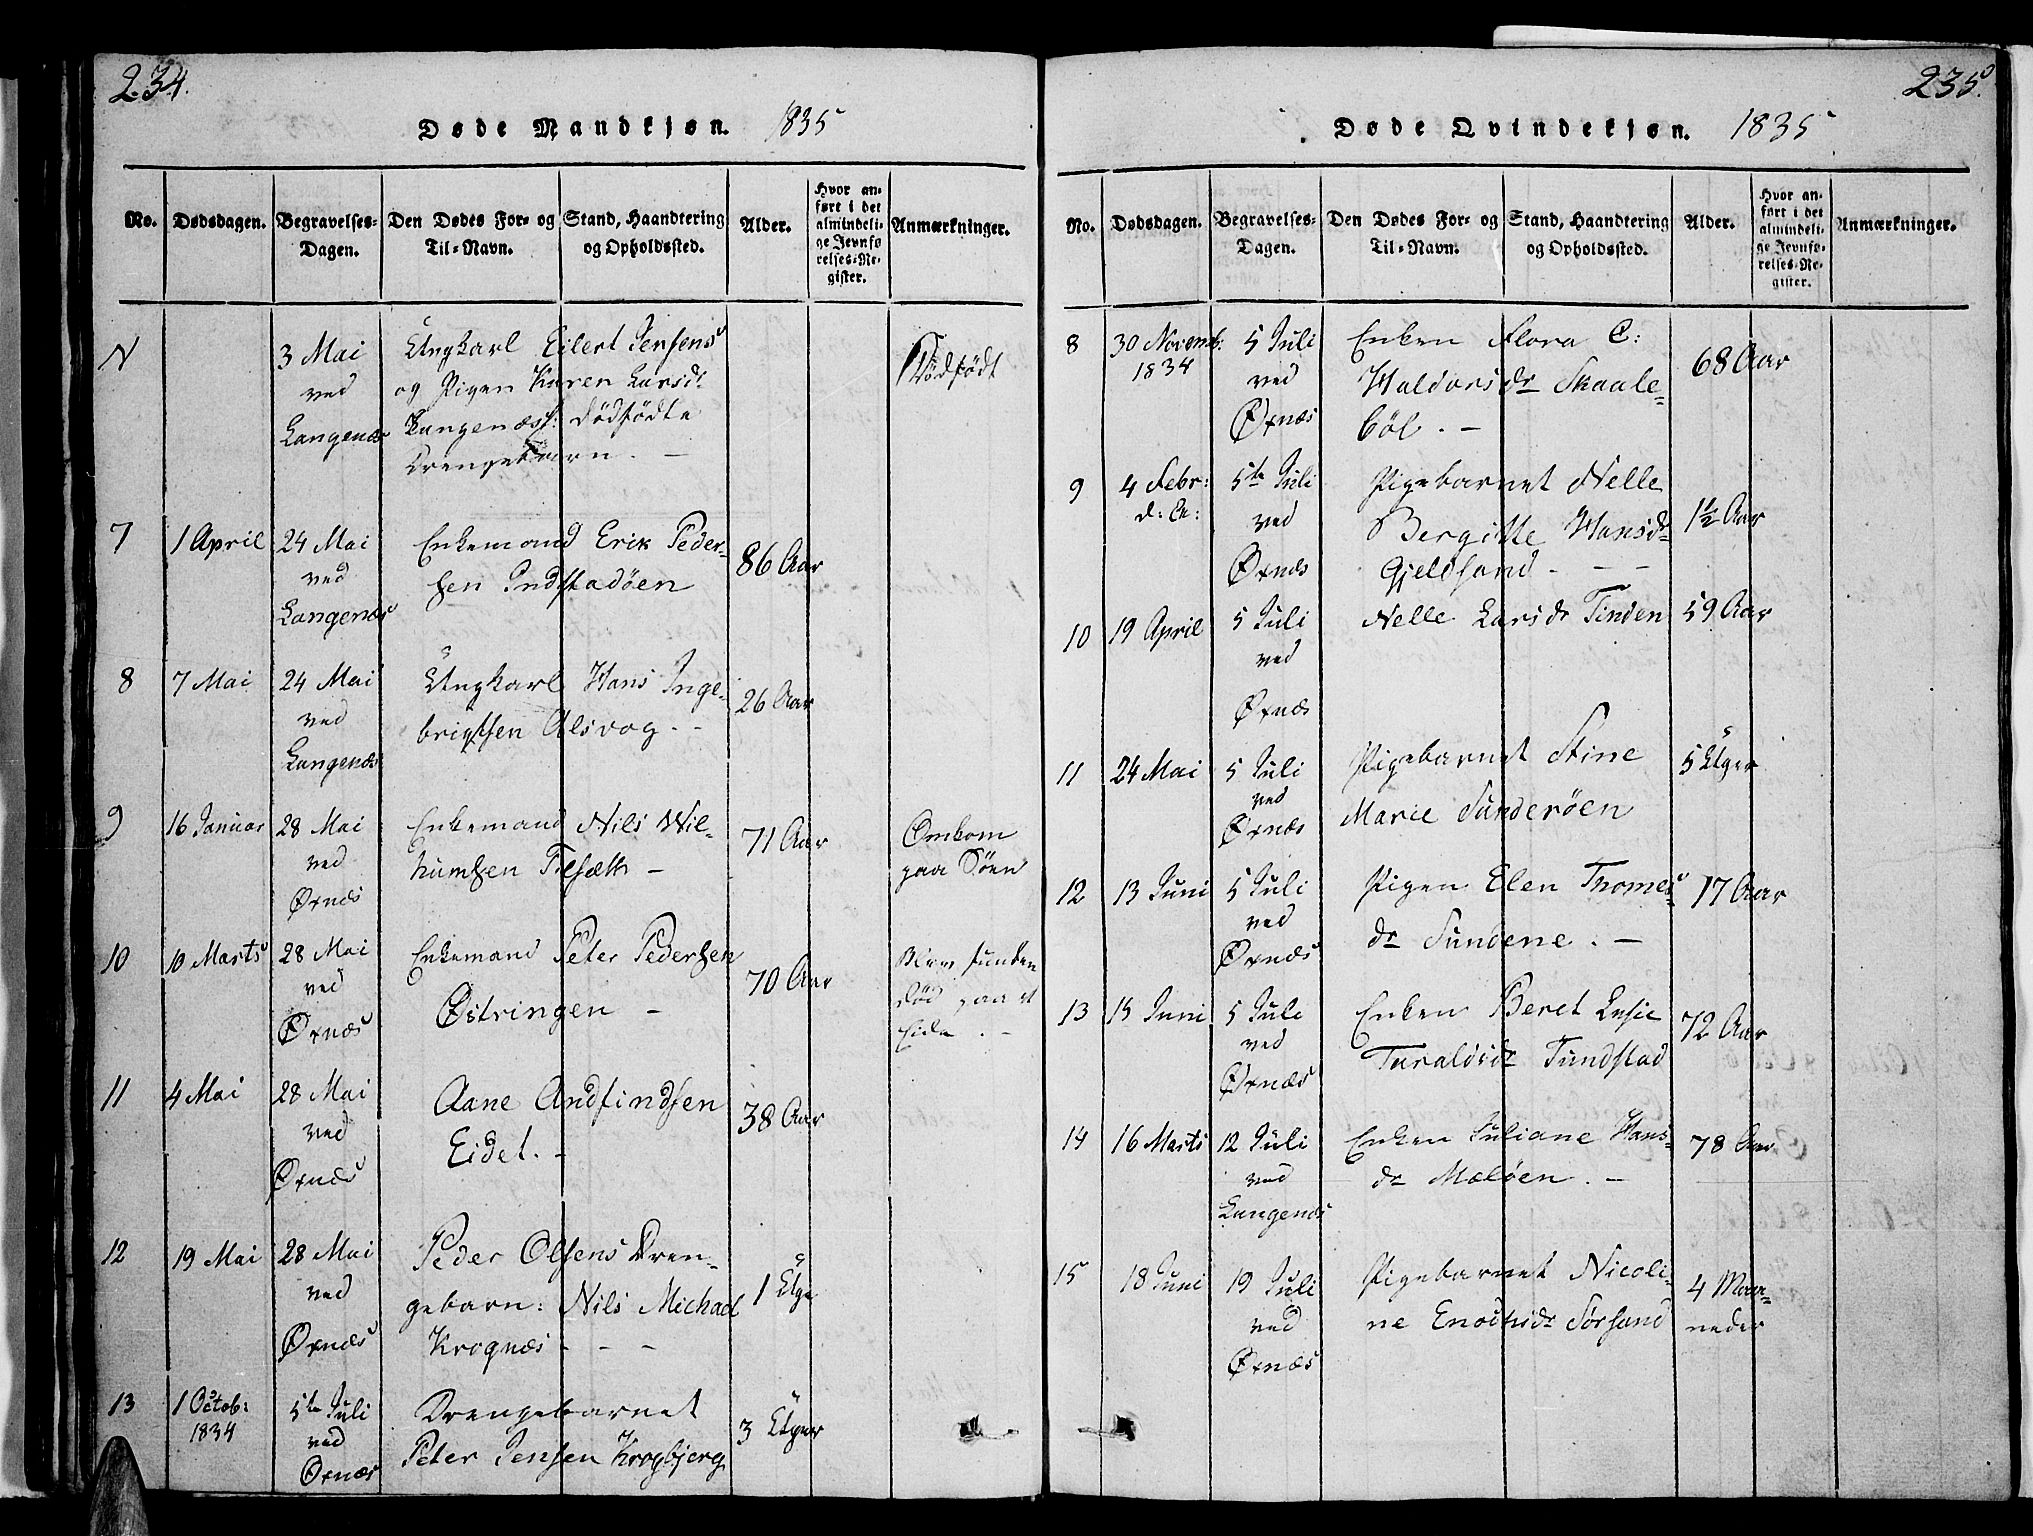 234.
Døde Mandkjøn. 1835
No.
Dødsdagen.
Begravelses-
Dagen.
Den Dødes For- og
Til-Navn.
Stand, Haandtering
og Opholdssted.
Alder.
Hvor an-
ført i det
almindeli-
ge Jevnfø-
relses-Re-
gister.
Anmærkninger.
N
3 Mai
ved
Langenæs
Ungkarl Eilert Jensens
og Pigen Karen Larsdr
Langenæs: dødfødte
Drengebarn. —
Dødfødt
7
1 April
24 Mai
ved
Langenæs
Enkemand Erik Peder-
sen Indstadøen
86 Aar
8
7 Mai
24 Mai
ved
Langenæs
Ungkarl Hans Inge-
brigtsen Alsvog. -
26 Aar
9
16 Januar
28 Mai
ved
Øxnæs
Enkemand Nils Wil-
humsen Tilsæth —
71 Aar
Omkom
paa Søen
10
10 Marts
28 Mai
ved
Øxnæs
Enkemand Peter Pedersen
Østringen —
70 Aar
Blev funden
død paa et
Eide. -
11
4 Mai
28 Mai
ved
Øxnæs
Aane Andfindsen
Eidet. -
38 Aar
12
19 Mai
28 Mai
ved
Øxnæs
Peder Olsens Dren-
gebarn: Nils Michael
Krognæs - - -
1 Uge
13
1 Octob:
1834
5te Juli
ved
Øxnæs
Drengebarnet
Peter Jensen Krogbjerg
3 Uger
235.
Døde Qvindekjøn. 1835
No.
Dødsdagen.
Begravelses-
Dagen.
Den Dødes For- og
Til-Navn.
Stand, Haandtering
og Opholdssted.
Alder.
Hvor an-
ført i det
almindeli-
ge Jevnfø-
relses-Re-
gister.
Anmærkninger.
8
30 Novemb:
1834
5 Juli
ved
Øxnæs
Enken Flora C:
Haldorsdr Skaale-
böl. —
68 Aar
9
4 Febr:
d: A:
5te Juli
ved
Øxnæs
Pigebarnet Nelle
Bergitte Hansdr
Gjeldsand - - -
1½ Aar
10
19 April
5 Juli
ved
Øxnæs
Nelle Larsdr Tinden
59 Aar
11
24 Mai
5 Juli
ved
Øxnæs
Pigebarnet Stine
Marie Sunderöen
5 Uger
12
13 Juni
5 Juli
ved
Øxnæs
Pigen Elen Thomes-
dr Sundene. —
17 Aar
13
15 Juni
5 Juli
ved
Øxnæs
Enken Beret Lusie
Taraldsdr Tundstad
72 Aar
14
16 Marts
12 Juli
ved
Langenæs
Enken Juliane Hans-
dr Meløen. —
78 Aar
15
18 Juni
19 Juli
ved
Øxnæs
Pigebarnet Nicoli-
ne Enochsdr Sørsand
4 Maa-
neder